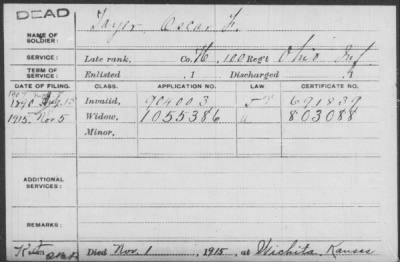 DEAD
NAME OF SOLDIER: Oscar F.
SERVICE: Late rank, Co. K, 100 Reg't Ohio Inf
TERM OF SERVICE: Enlisted , 1 Discharged , 1
DATE OF FILING. CLASS. APPLICATION NO. LAW CERTIFICATE NO.
1890 Invalid, 904003 691839
1915 Nov 5 Widow, 1055386 " 803088
Minor,
ADDITIONAL SERVICES:
REMARKS:
Died Nov. 1 1915, at Wichita, Kansas